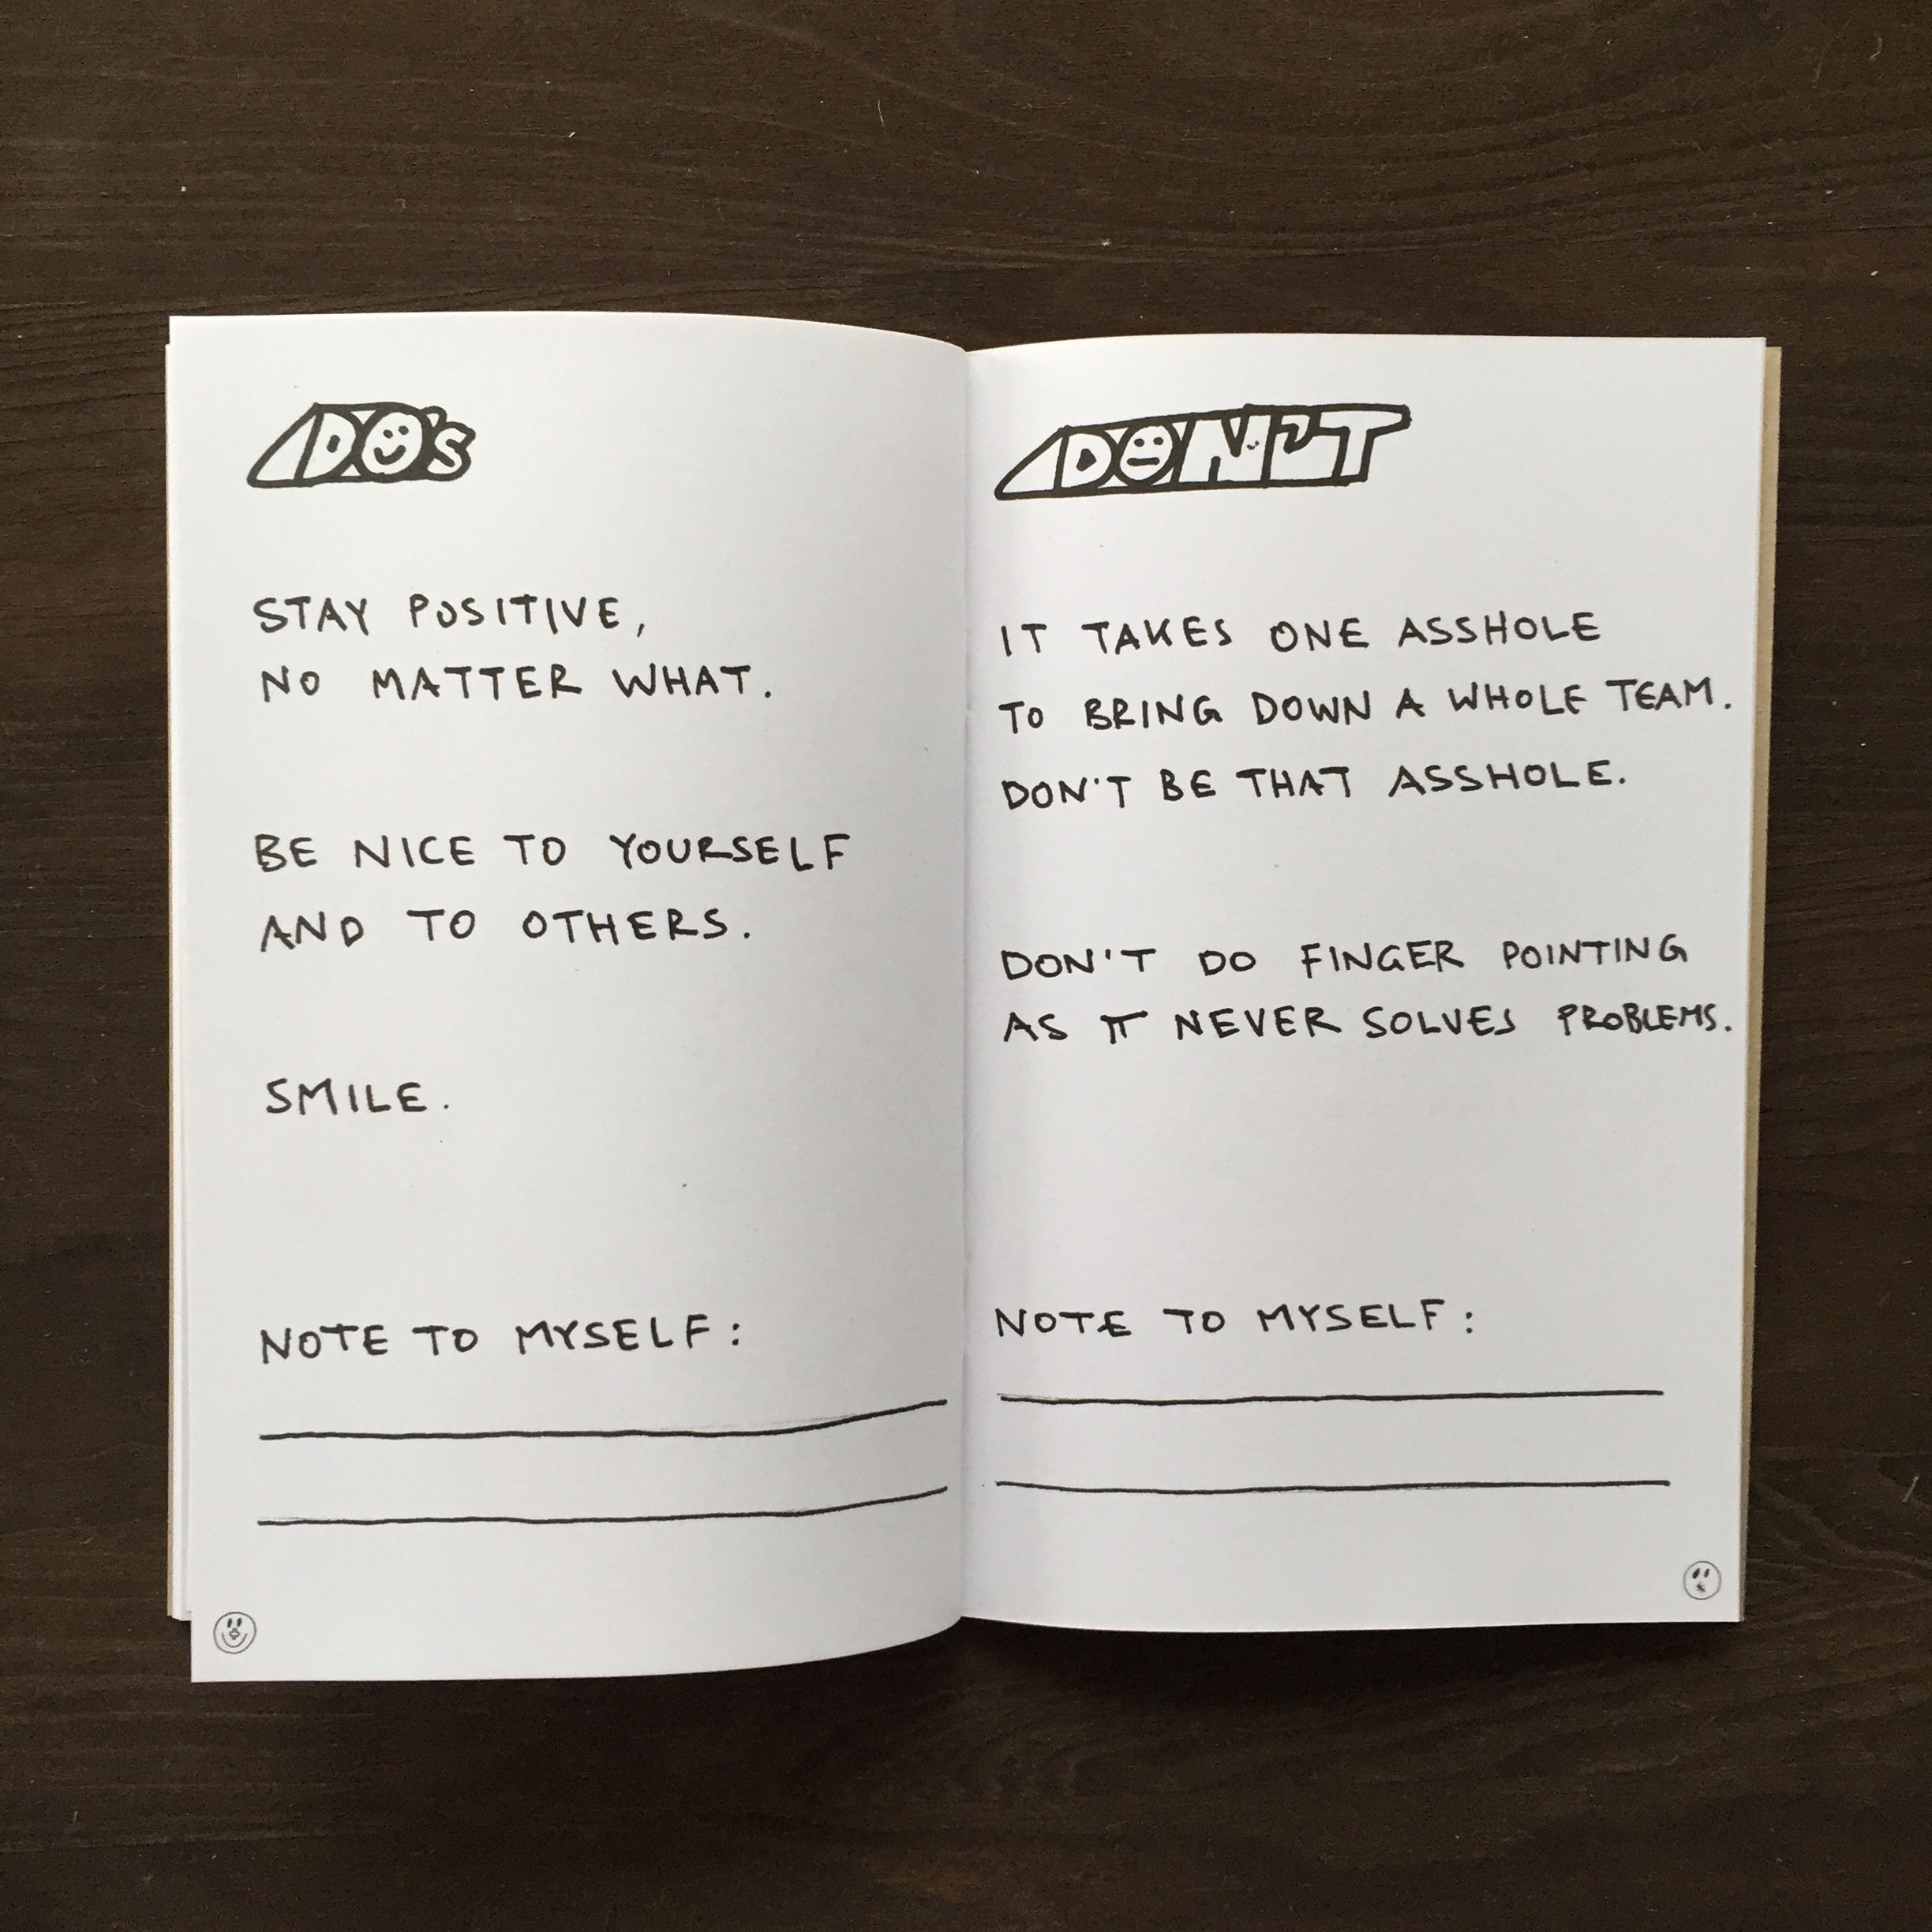 DO's
STAY POSITIVE,
NO MATTER WHAT.
BE NICE TO YOURSELF
AND TO OTHERS.
SMILE.
NOTE TO MYSELF:
DON'T
IT TAKES ONE ASSHOLE
TO BRING DOWN A WHOLE TEAM.
DON'T BE THAT ASSHOLE.
DON'T DO FINGER POINTING
AS IT NEVER SOLVES PROBLEMS.
NOTE TO MYSELF: